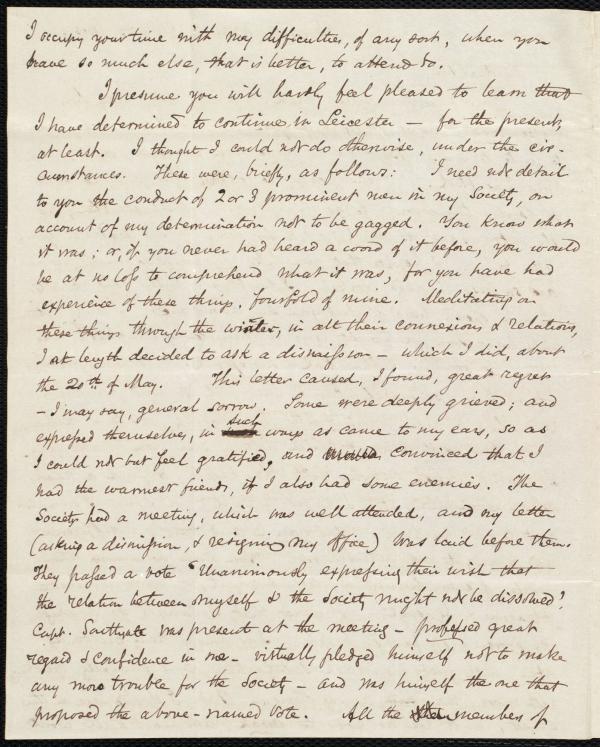 I occupy your time with my difficulties, of any sort, when you
have so much else, that is better, to attend to.
I presume you will hardly feel pleased to learn that
I have determined to continue in Leicester – for the present,
at least. I thought I could not do otherwise, under the cir-
cumstances. These were, briefly, as follows: I need not detail
to you the conduct of 2 or 3 prominent men in my Society, on
account of my determination not to be gagged. You know what
it was; or, if you never had heard a word of it before, you would
be at no loss to comprehend what it was, for you have had
experience of these things, fourfold of mine. Meditating on
these things through the winter, in all their connexions & relations,
I at length decided to ask a dismission – which I did, about
the 20th of May. This letter caused, I found, great regret
– I may say, general sorrow. Some were deeply grieved; and
expressed themselves, in such ways as came to my ears, so as
I could not but feel gratified, and convinced that I
had the warmest friends, if I also had some enemies. The
Society had a meeting, which was well attended, and my letter
(asking a dismission, & resigning my office) was laid before them.
They passed a vote "Unanimously expressing their wish that
the relation between myself & the Society might not be dissolved".
Capt. Southgate was present at the meeting – professed great
regard & confidence in me – virtually pledged himself not to make
any more trouble for the Society – and was himself the one that
proposed the above-named vote. All the members of